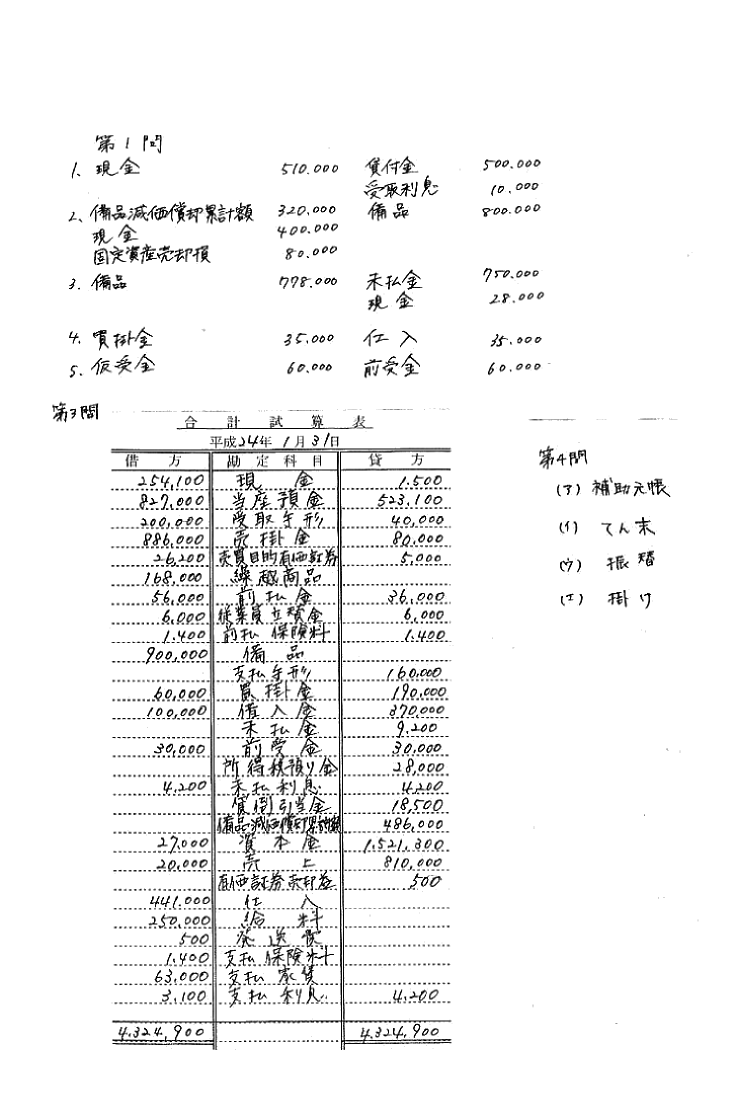 第1問
1. 現金 510.000 貸付金 500.000
受取利息 10.000
2、備品減価償却累計額 320.000 備品 800.000
現金 400.000
固定資産売却損 80.000
3. 備品 778.000 未払金 750.000
現金 28.000
4. 買掛金 35.000 仕入 35.000
5. 仮受金 60.000 前受金 60.000
第3問
合計試算表
平成24年1月31日
借方 勘定科目 貸方
254,100 現金 1.500
827,000 当座預金 523,100
200,000 受取手形 40,000
886,000 売掛金 80,000
26,200 売買目的有価証券 5,000
168,000 繰越商品
56,000 前払金 36,000
6,000 従業員立替金 6,000
1.400 前払保険料 1.400
900,000 備品
支払手形 160,000
60,000 買掛金 190,000
100,000 借入金 370,000
未払金 9.200
30,000 前受金 30,000
所得税預り金 28,000
4.200 未払利息 4200
貸倒引当金 18,500
備品減価償却累計額 486,000
27,000 資本金 1,521,300
20,000 売上 810,000
有価証券売却益 500
441.000 仕入
250,000 給料
500 発送費
1.400 支払保険料
63,000 支払家賃
3,100 支払利息 4,200
4.324,900 4.324,900
第4問
(ア) 補助元帳
(イ) てん末
(ウ) 振替
(エ) 掛け